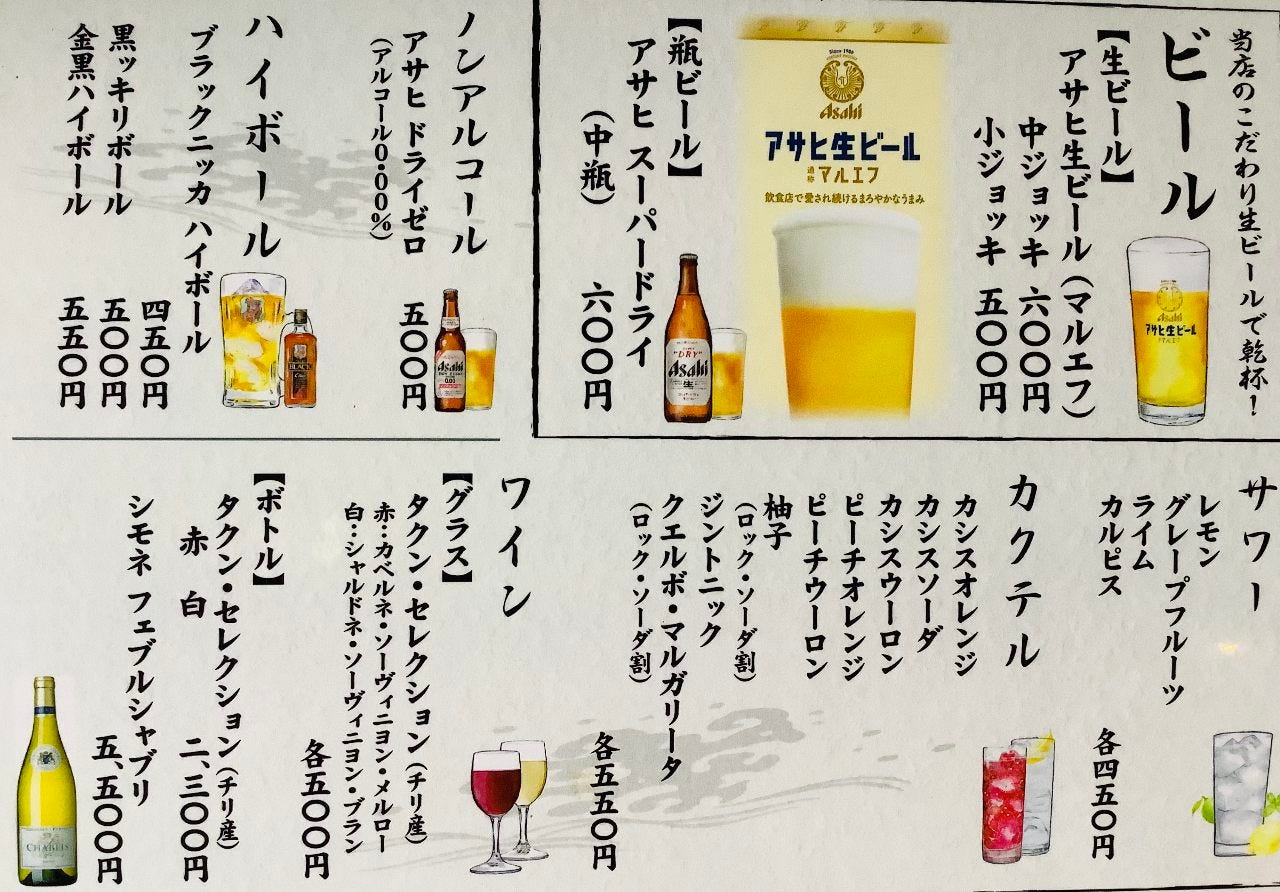 当店のこだわり生ビールで乾杯!
ビール
【生ビール】
アサヒ生ビール(マルエフ)
中ジョッキ 六〇〇円
小ジョッキ 五〇〇円
Since 1986
Asahi
アサヒ生ビール
通称 マルエフ
飲食店で愛され続けるまろやかなうまみ
Asahi
アサヒ生ビール
マルエフ
【瓶ビール】
アサヒ スーパードライ
(中瓶) 六〇〇円
"DRY"
Asahi
生
ノンアルコール
アサヒ ドライゼロ
(アルコール0・00%)
五〇〇円
Asahi
0.00
ハイボール
ブラックニッカ ハイボール
四五〇円
黒ッキリボール
五〇〇円
金黒ハイボール
五五〇円
BLACK
サワー
レモン
グレープフルーツ
ライム
カルピス
各四五〇円
カクテル
カシスオレンジ
カシスソーダ
カシスウーロン
ピーチオレンジ
ピーチウーロン
柚子
(ロック・ソーダ割)
ジントニック
クエルボ・マルガリータ
(ロック・ソーダ割)
各五五〇円
ワイン
【グラス】
タクン・セレクション(チリ産)
赤:カベルネ・ソーヴィニヨン・メルロー
白:シャルドネ・ソーヴィニヨン・ブラン
各五〇〇円
【ボトル】
タクン・セレクション(チリ産)
赤 白 二、三〇〇円
シモネ フェブルシャブリ
五、五〇〇円
CHABLIS